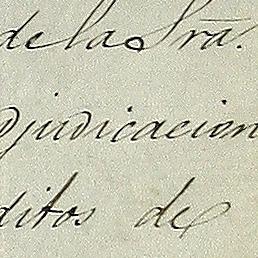 de la Sra.
djudicacion
ditos de